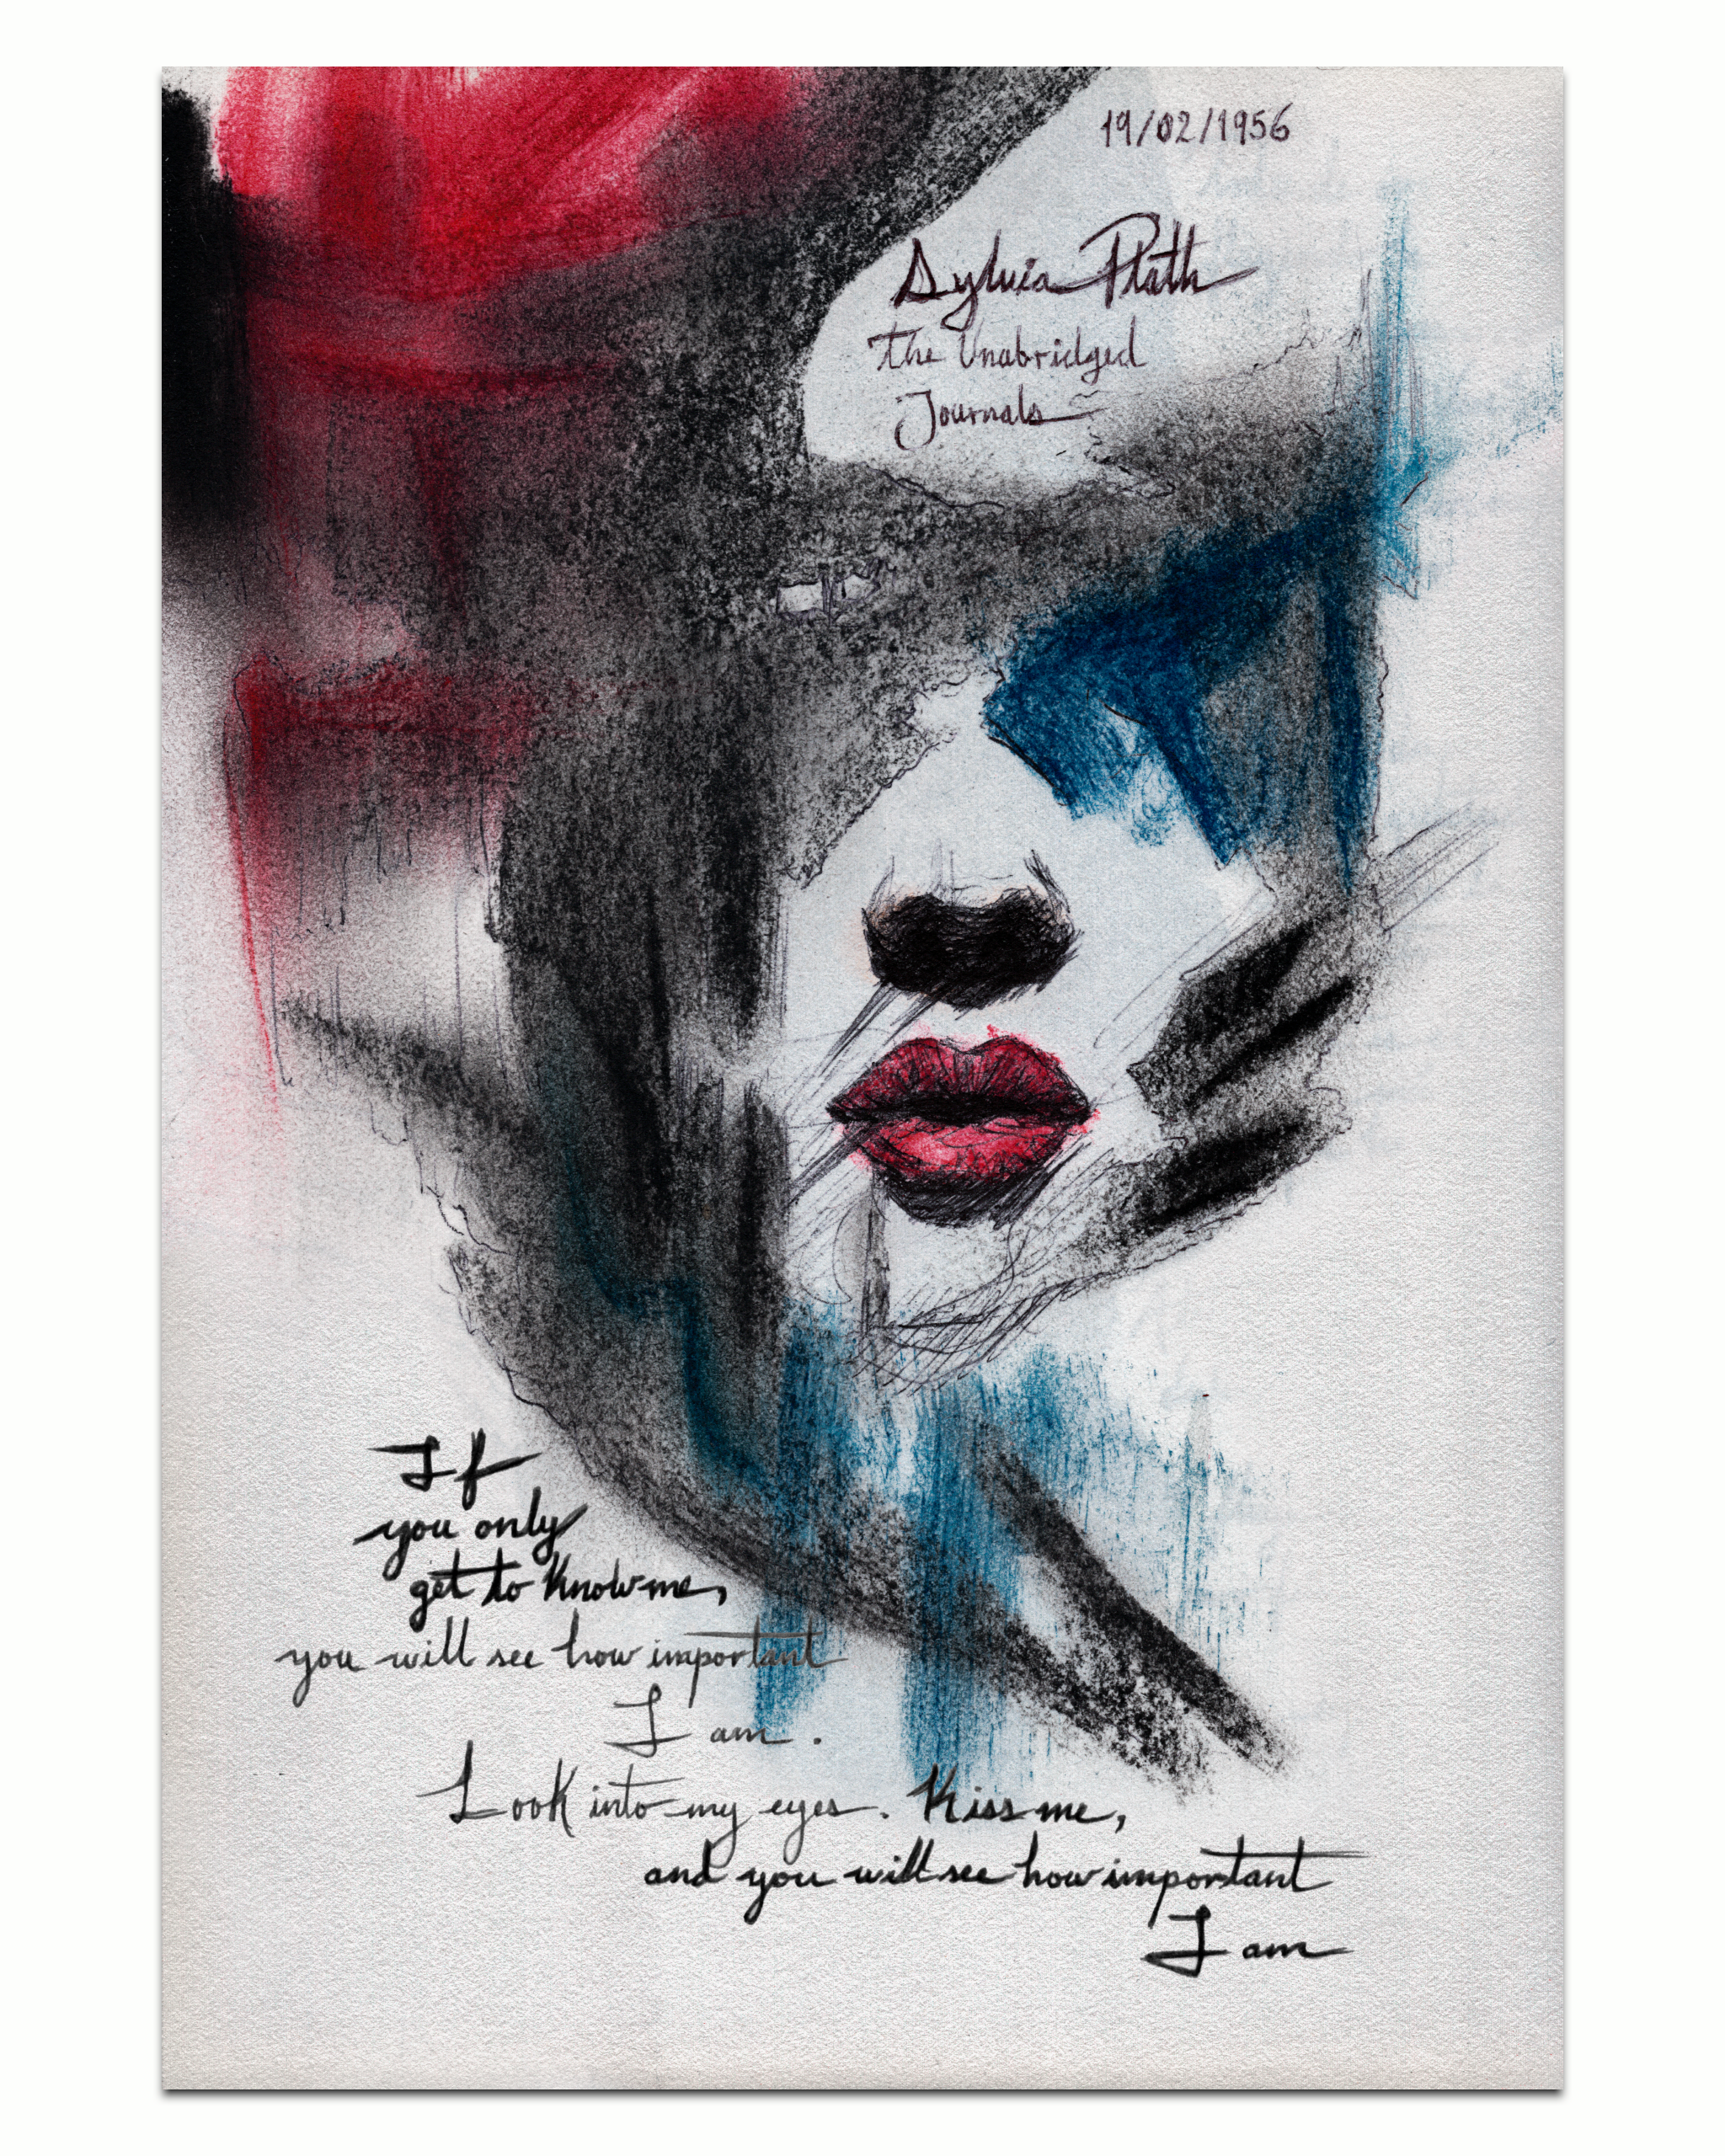 19/02/1956
Sylvia Plath
the Unabridged
Journals
If
you only
get to know me,
you will see how important
I am.
Look into my eyes. Kiss me,
and you will see how important
I am